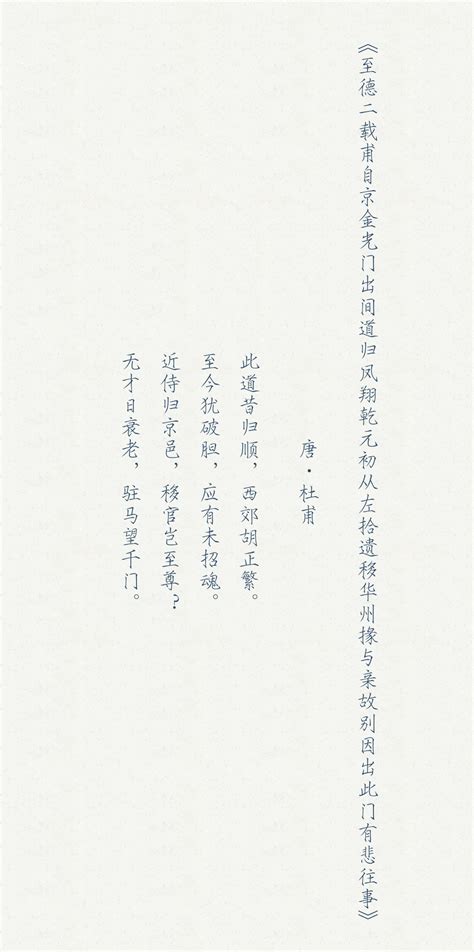 《至德二载甫自京金光门出间道归凤翔乾元初从左拾遗移华州掾与亲故别因出此门有悲往事》
唐·杜甫
此道昔归顺，西郊胡正繁。
至今犹破胆，应有未招魂。
近侍归京邑，移官岂至尊？
无才日衰老，驻马望千门。